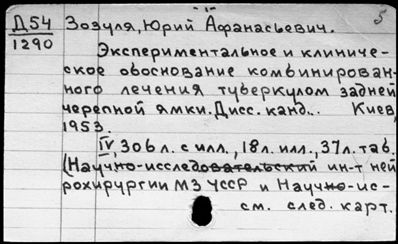 5
Д54 Зозуля, Юрий Афанасьевич.
1290
Экспериментальное и клиниче-
ское обоснование комбинирован-
ного лечения туберкулом задней
черепной ямки. Дисс. канд.. Киев,
1953.
IV, 306 л. с илл., 18 л. илл., 37 л. таб.
(Научно-исследовательский ин-т ней
рохирургии МЗ УССР и Научно-ис-
см. след. карт.